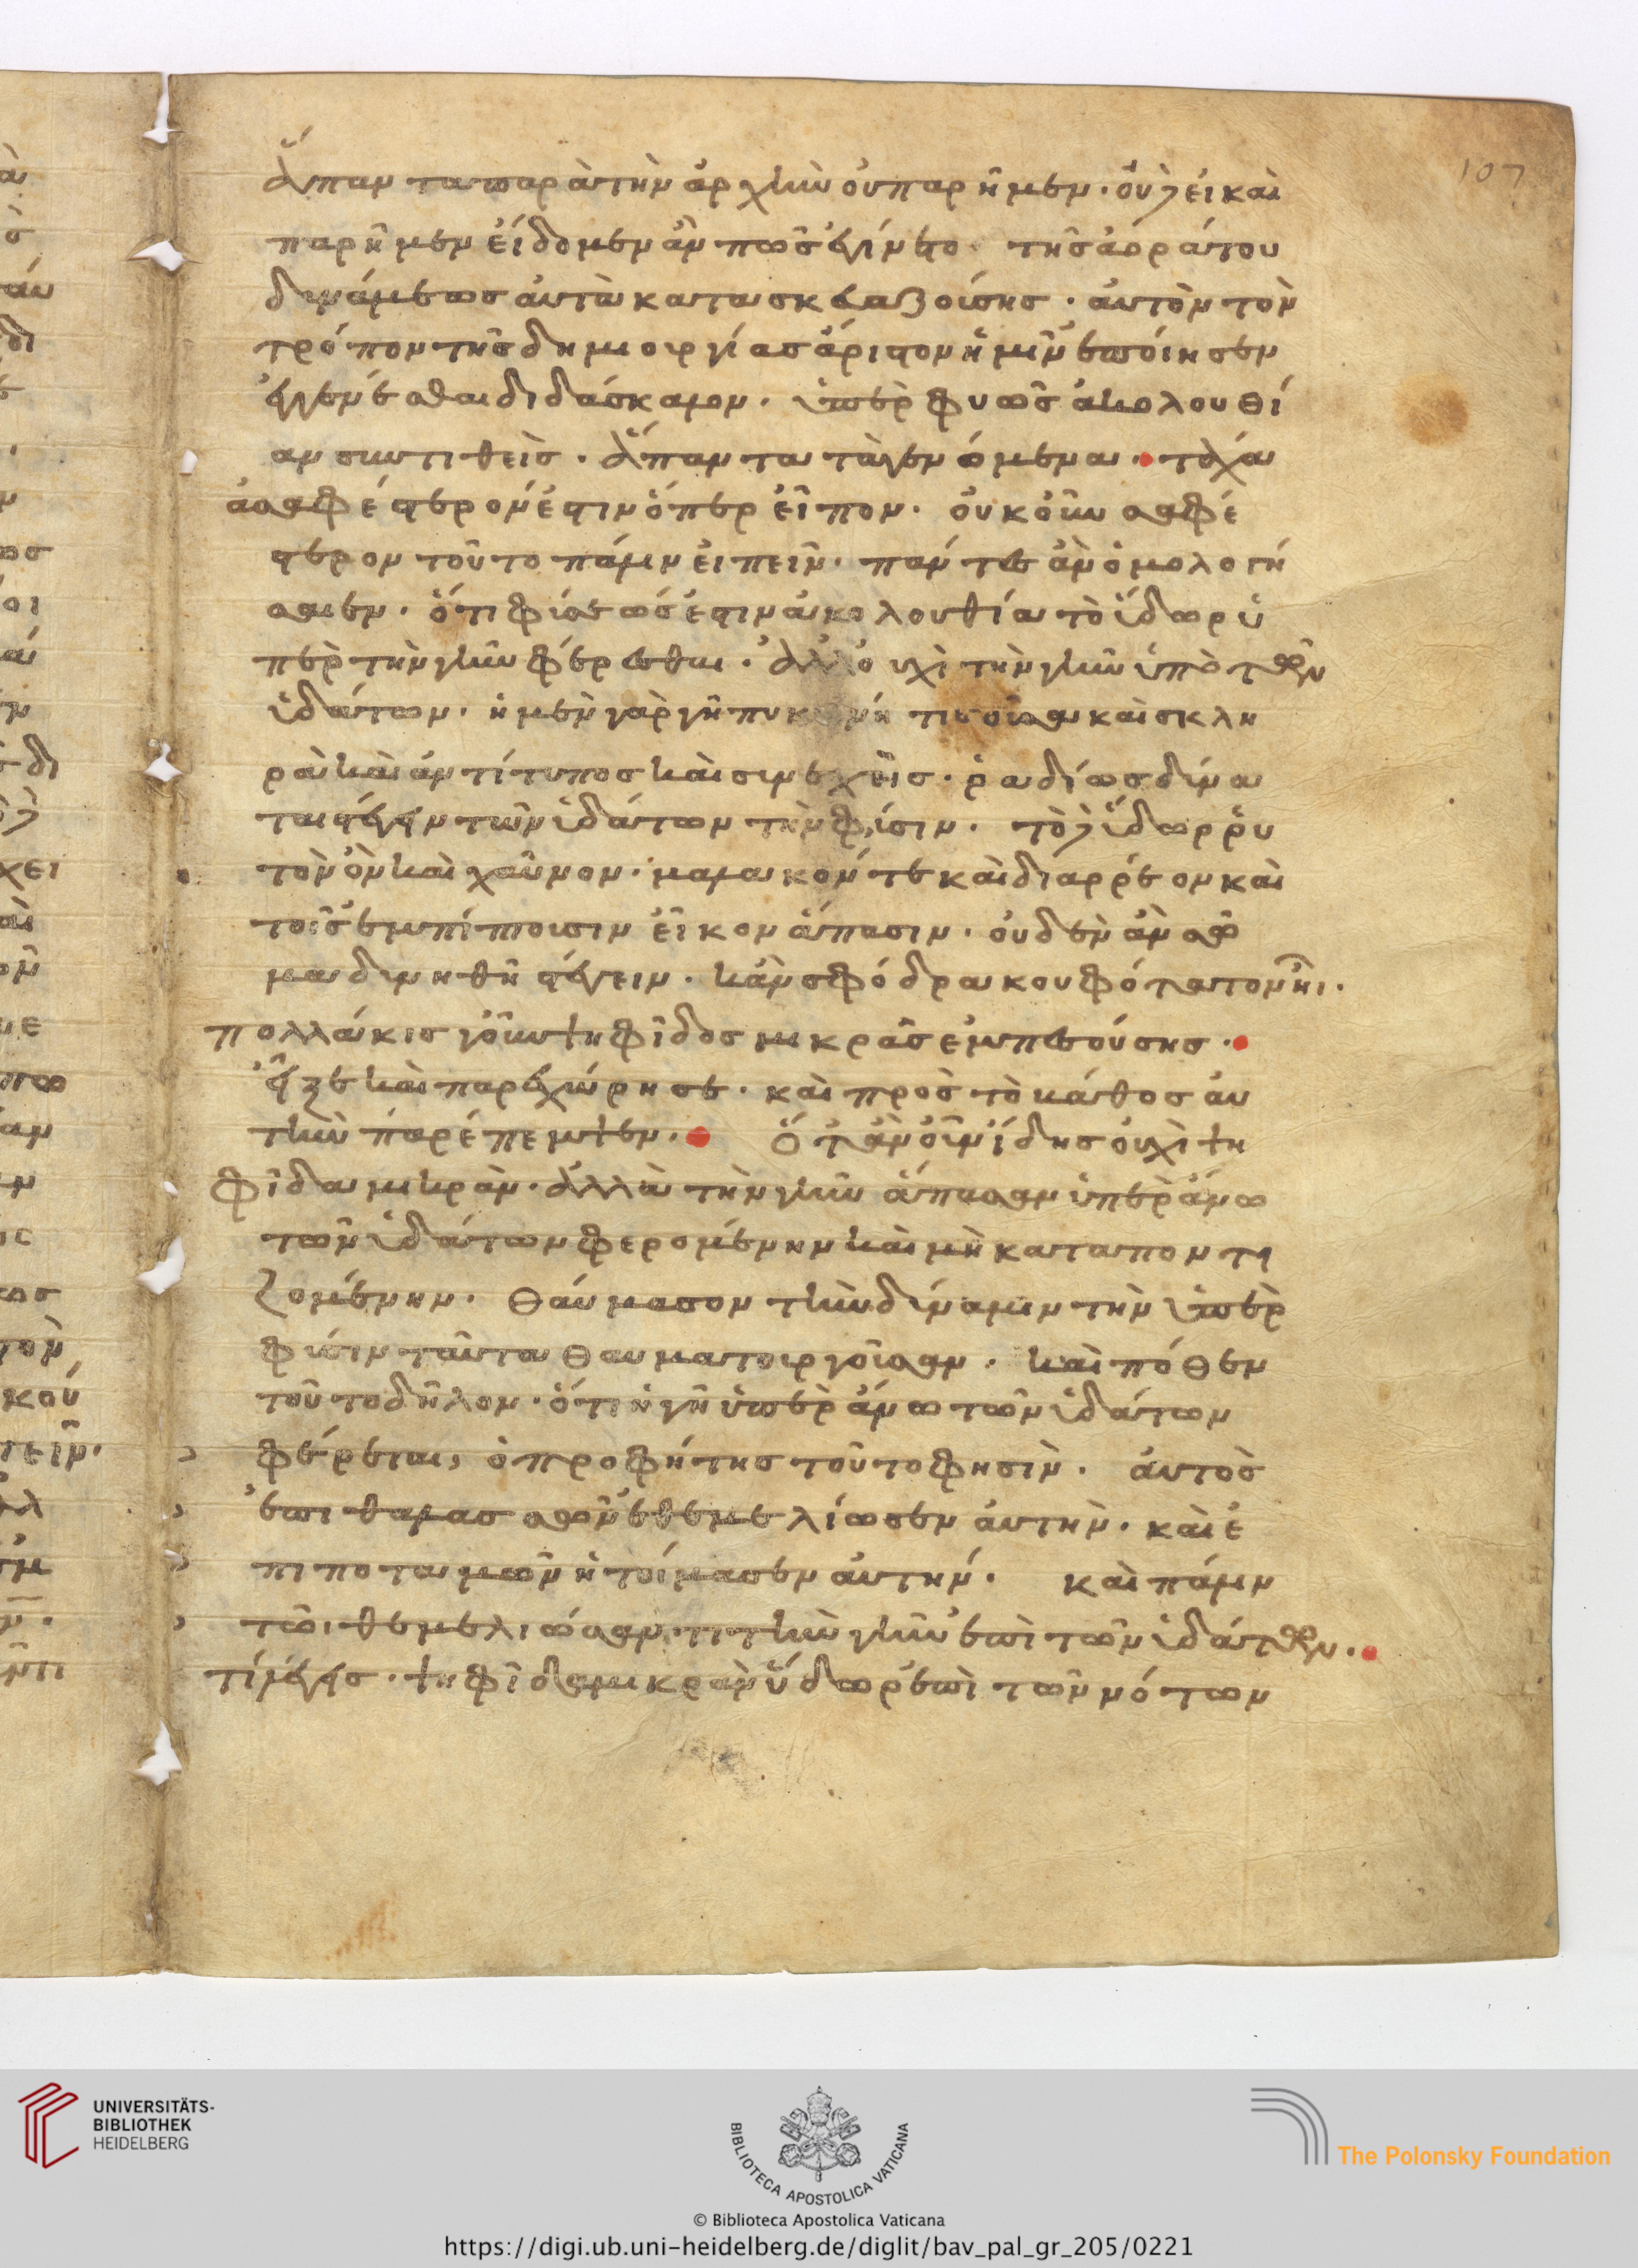 107
ἅπαντα παρὰ τὴν ἀρχὴν οὐ παρῆμεν. οὐδ εἰ καὶ
παρῆμεν εἴδομεν ἂν πῶς ἐγίνετο τῆς ἀοράτου
δυνάμεως αὐτὰ κατασκευαζούσης. αὐτὸν τὸν
τρόπον τῆς δημιουργίας ἄριστον ἡμῖν ἐποίησεν
γενέσθαι διδάσκαλον. ὑπερφυῶς ἀκολουθί
αν συντιθεὶς. ἅπαντα τὰ γενόμενα. τάχα
ἀσαφέστερον ἐστιν ὅπερ εἶπον. οὐκοῦν σαφέ
στερον τοῦτο πάλιν εἰπεῖν. πάντες ἂν ὁμολογή
σαιμεν. ὅτι φύσεώς ἐστιν ἀκολουθία τὸ ὕδωρ ὑ
πὲρ τὴν γῆν φέρεσθαι. ἀλλ οὐχὶ τὴν γῆν ὑπὸ τῶν
ὑδάτων. ἡ μὲν γὰρ γῆ πυκνή τις οὖσα καὶ σκλη
ρὰ καὶ ἀντίτυπος καὶ συνεχὴς. ῥαδίως δύνα
ται στέγειν τῶν ὑδάτων τὴν φύσιν. τὸ δ ὕδωρ ῥυ
τὸν ὂν καὶ χαῦνον. μαλακόν τε καὶ διαρρέον καὶ
τοῖς ἐμπίπτουσιν εἶκον ἅπασιν. οὐδὲν ἂν σῶ
μα δυνηθῆ στέγειν. κἂν σφόδρα κουφότατον ἦι.
πολλάκις γοῦν ψηφῖδος μικρᾶς ἐμπεσούσης.
εἶξε καὶ παρεχώρησε. καὶ πρὸς τὸ κάθος αὐ
τὴν παρέπεμψεν. Ὅταν οὖν ἴδης οὐχὶ ψη
φῖδα μικρὰν. ἀλλὰ τὴν γῆν ἅπασαν ὑπὲρ ἄνω
τῶν ὑδάτων φερομένην καὶ μὴ καταποντι
ζομένην. θαύμασον τὴν δύναμιν τὴν ὑπὲρ
φύσιν ταῦτα θαυματουργοῦσαν. καὶ πόθεν
τοῦτο δῆλον. ὅτι ἡ γῆ ὑπὲρ ἄνω τῶν ὑδάτων
φέρεται, ὁ προφήτης τοῦτο φησὶν. αὐτὸς
ἐπι θαλασσῶν ἐθεμελίωσεν αὐτὴν. καὶ ἐ
πι ποταμῶν ἡτοίμασεν αὐτήν. καὶ πάλιν
τῶι θεμελιώσαντι τὴν γῆν ἐπὶ τῶν ὑδάτων.
τί λέγεις. ψηφῖδα μικρὰν ὕδωρ ἐπὶ τῶν νότων
UNIVERSITÄTS-
BIBLIOTHEK
HEIDELBERG
BIBLIOTECA APOSTOLICA VATICANA
The Polonsky Foundation
© Biblioteca Apostolica Vaticana
https://digi.ub.uni-heidelberg.de/diglit/bav_pal_gr_205/0221